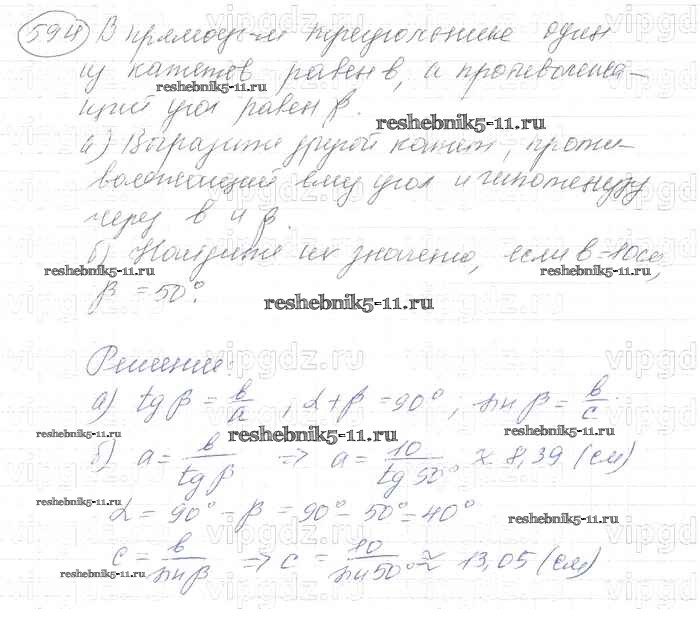 594 В прямоуг-м треугольнике один
из катетов равен b, а противолежа-
щий угол равен β.
а) Выразите другой катет, проти-
волежащий ему угол и гипотенузу
через b и β.
б) Найдите их значения, если b = 10 см,
β = 50°.
Решение:
а) tg β = b/a ; α + β = 90° ; sin β = b/c.
б) a = b/tg β => a = 10/tg 50° ≈ 8,39 (см)
α = 90° - β = 90° - 50° = 40°
c = b/sin β => c = 10/sin 50° ≈ 13,05 (см)
reshebnik5-11.ru
reshebnik5-11.ru
reshebnik5-11.ru
reshebnik5-11.ru
reshebnik5-11.ru
reshebnik5-11.ru
reshebnik5-11.ru
reshebnik5-11.ru
reshebnik5-11.ru
reshebnik5-11.ru
reshebnik5-11.ru
vipgdz.ru
vipgdz.ru
vipgdz.ru
vipgdz.ru